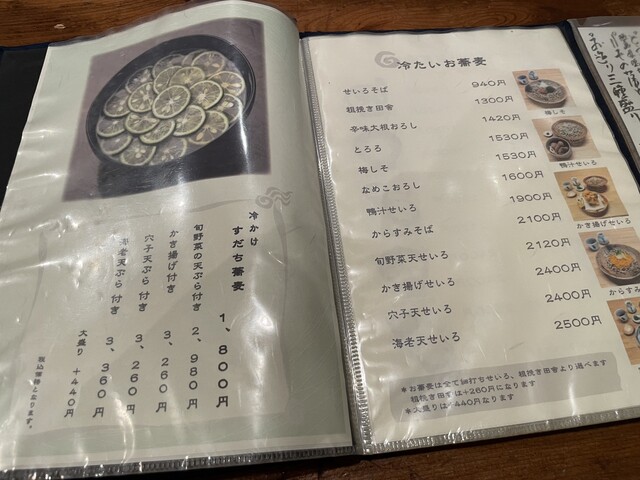 冷かけ
すだち蕎麦 1,800円
旬野菜の天ぷら付き 2,980円
かき揚げ付き 3,260円
穴子天ぷら付き 3,260円
海老天ぷら付き 3,360円
大盛り +440円
税込価格となります。
冷たいお蕎麦
せいろそば 940円
粗挽き田舎 1300円
辛味大根おろし 1420円
とろろ 1530円
梅しそ 1530円
なめこおろし 1600円
鴨汁せいろ 1900円
からすみそば 2100円
旬野菜天せいろ 2120円
かき揚げせいろ 2400円
穴子天せいろ 2400円
海老天せいろ 2500円
*お蕎麦は全て細打ちせいろ、粗挽き田舎より選べます
粗挽き田舎は+260円になります
*大盛りは+440円なります
梅しそ
鴨汁せいろ
かき揚げせいろ
からすみ